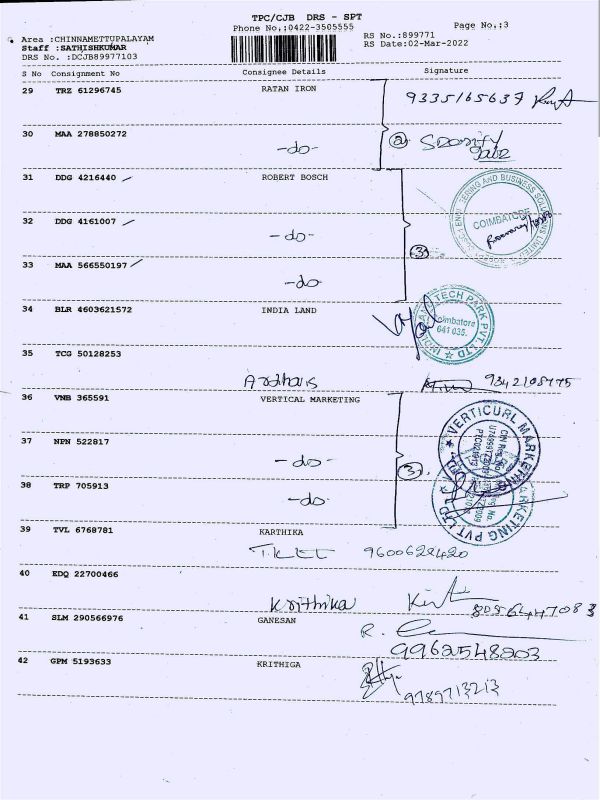 TPC/CJB DRS - SPT
Phone No.:0422-3505555
Page No.:3
Area :CHINNAMETTUPALAYAM
Staff :SATHISHKUMAR
DRS No. :DCJB89977103
RS No.:899771
RS Date:02-Mar-2022
S No Consignment No Consignee Details Signature
29 TRZ 61296745 RATAN IRON 9335165637
30 MAA 278850272 -do- ② Security Gate
31 DDG 4216440 ROBERT BOSCH
32 DDG 4161007 -do- COIMBATORE
33 MAA 566550197 -do- ③
34 BLR 4603621572 INDIA LAND
TECH PARK PVT. LTD
Coimbatore
641 035.
35 TCG 50128253
36 VNB 365591 VERTICAL MARKETING
VERTICURL MARKETING PVT LTD
37 NPN 522817 -do- ③.
38 TRP 705913 -do-
39 TVL 6768781 KARTHIKA
9600622420
40 EDQ 22700466 Krithika
41 SLM 290566976 GANESAN R.
9962548203
42 GPM 5193633 KRITHIGA
9789713213